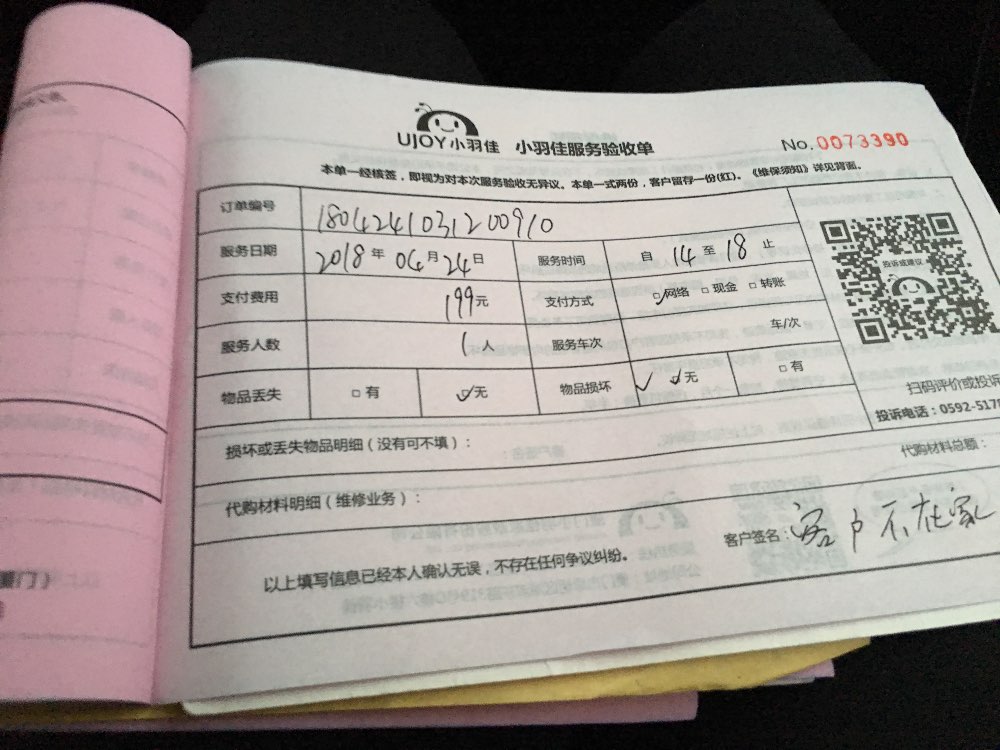 UJOY小羽佳 小羽佳服务验收单 No.0073390
本单一经核签，即视为对本次服务验收无异议。本单一式两份，客户留存一份(红)。《维保须知》详见背面。
订单编号 1804241031200910
服务日期 2018年04月24日 服务时间 自14至18止
支付费用 199元 支付方式 网络 现金 转账
服务人数 1人 服务车次 车/次
物品丢失 有 无 物品损坏 无 有
投诉或建议
扫码评价或投诉
投诉电话：0592-5178
损坏或丢失物品明细（没有可不填）：
代购材料总额：
代购材料明细（维修业务）：
客户签名：客户不在家
以上填写信息已经本人确认无误，不存在任何争议纠纷。